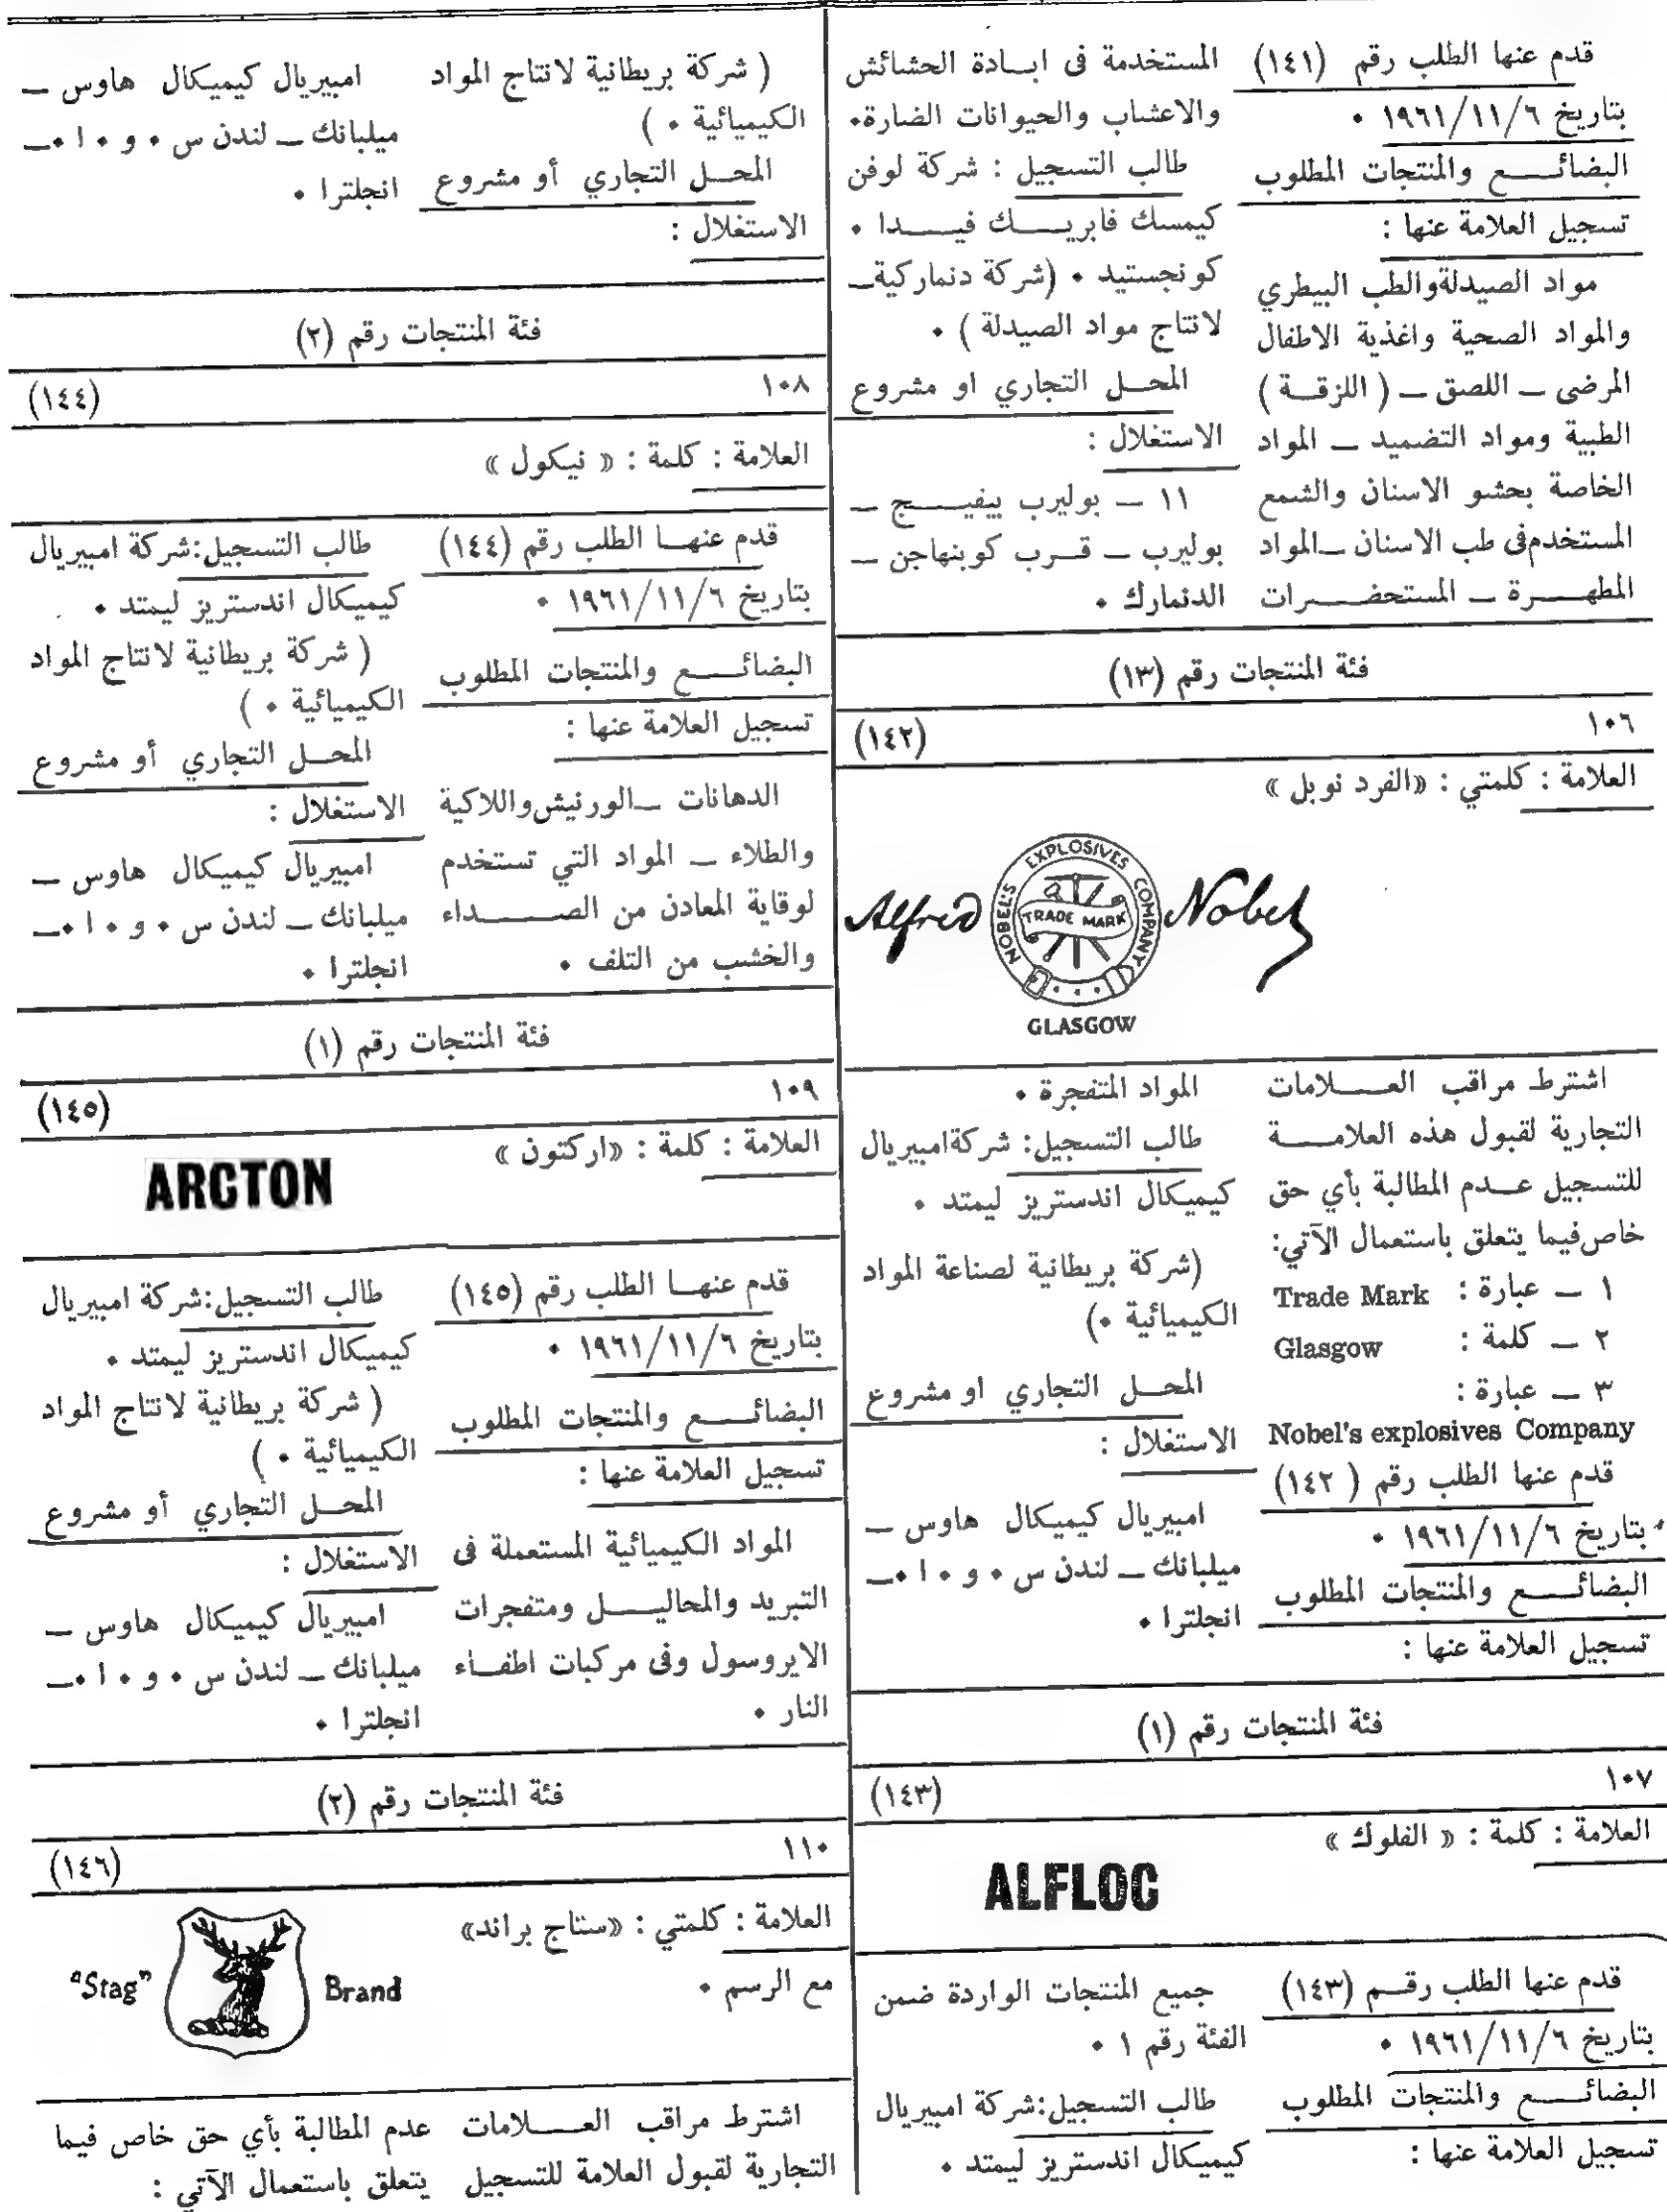 قدم عنها الطلب رقم (١٤١)
بتاريخ ١٩٦١/١١/٦ ٠
البضائــــع والمنتجات المطلوب
تسجيل العلامة عنها :
مواد الصيدلة والطب البيطري
والمواد الصحية واغذية الاطفال
المرضى ــ اللصق ــ ( اللزقــة )
الطبية ومواد التضميد ــ المواد
الخاصة بحشو الاسنان والشمع
المستخدم فى طب الاسنان ــ المواد
المطهــــرة ــ المستحضــــرات
المستخدمة فى ابــادة الحشائش
والاعشاب والحيوانات الضارة٠
طالب التسجيل : شركة لوفن
كيمسك فابريــــك فيــــدا ٠
كونجستيد ٠ (شركة دنماركية ــ
لانتاج مواد الصيدلة ) ٠
المحــل التجاري او مشروع
الاستغلال :
١١ ــ بوليرب بيفيــــج ــ
بوليرب ــ قــرب كوبنهاجن ــ
الدنمارك ٠
فئة المنتجات رقم (١٣)
١٠٦ (١٤٢)
العلامة : كلمتي : «الفرد نوبل »
Alfred Nobel
NOBEL'S EXPLOSIVES COMPANY
TRADE MARK
GLASGOW
اشترط مراقب العــــلامات
التجارية لقبول هذه العلامــــة
للتسجيل عــدم المطالبة بأي حق
خاص فيما يتعلق باستعمال الآتي:
١ ــ عبارة : Trade Mark
٢ ــ كلمة : Glasgow
٣ ــ عبارة :
Nobel's explosives Company
قدم عنها الطلب رقم ( ١٤٢)
بتاريخ ١٩٦١/١١/٦ ٠
البضائــــع والمنتجات المطلوب
تسجيل العلامة عنها :
المواد المتفجرة ٠
طالب التسجيل: شركة امبيريال
كيميكال اندستريز ليمتد ٠
(شركة بريطانية لصناعة المواد
الكيميائية ٠)
المحــل التجاري او مشروع
الاستغلال :
امبيريال كيميكال هاوس ــ
ميلبانك ــ لندن س ٠ و ٠ ١ ٠ــ
انجلترا ٠
فئة المنتجات رقم (١)
١٠٧ (١٤٣)
العلامة : كلمة : « الفلوك »
ALFLOC
قدم عنها الطلب رقــم (١٤٣)
بتاريخ ١٩٦١/١١/٦ ٠
البضائــــع والمنتجات المطلوب
تسجيل العلامة عنها :
جميع المنتجات الواردة ضمن
الفئة رقم ١ ٠
طالب التسجيل:شركة امبيريال
كيميكال اندستريز ليمتد ٠
( شركة بريطانية لانتاج المواد
الكيميائية ٠ )
المحــل التجاري أو مشروع
الاستغلال :
امبيريال كيميكال هاوس ــ
ميلبانك ــ لندن س ٠ و ٠ ١ ٠ــ
انجلترا ٠
فئة المنتجات رقم (٢)
١٠٨ (١٤٤)
العلامة : كلمة : « نيكول »
قدم عنهــا الطلب رقم (١٤٤)
بتاريخ ١٩٦١/١١/٦ ٠
البضائــــع والمنتجات المطلوب
تسجيل العلامة عنها :
الدهانات ــالورنيش واللاكية
والطلاء ــ المواد التي تستخدم
لوقاية المعادن من الصــــداء
والخشب من التلف ٠
طالب التسجيل:شركة امبيريال
كيميكال اندستريز ليمتد ٠
( شركة بريطانية لانتاج المواد
الكيميائية ٠ )
المحــل التجاري أو مشروع
الاستغلال :
امبيريال كيميكال هاوس ــ
ميلبانك ــ لندن س ٠ و ٠ ١ ٠ــ
انجلترا ٠
فئة المنتجات رقم (١)
١٠٩ (١٤٥)
العلامة : كلمة : «اركتون »
ARCTON
قدم عنهــا الطلب رقم (١٤٥)
بتاريخ ١٩٦١/١١/٦ ٠
البضائــــع والمنتجات المطلوب
تسجيل العلامة عنها :
المواد الكيميائية المستعملة فى
التبريد والمحاليــــل ومتفجرات
الايروسول وفى مركبات اطفــاء
النار ٠
طالب التسجيل:شركة امبيريال
كيميكال اندستريز ليمتد ٠
( شركة بريطانية لانتاج المواد
الكيميائية ٠ )
المحــل التجاري أو مشروع
الاستغلال :
امبيريال كيميكال هاوس ــ
ميلبانك ــ لندن س ٠ و ٠ ١ ٠ــ
انجلترا ٠
فئة المنتجات رقم (٢)
١١٠ (١٤٦)
العلامة : كلمتي : «ستاج براند»
مع الرسم ٠
"Stag" Brand
اشترط مراقب العــــلامات
التجارية لقبول العلامة للتسجيل
عدم المطالبة بأي حق خاص فيما
يتعلق باستعمال الآتي :